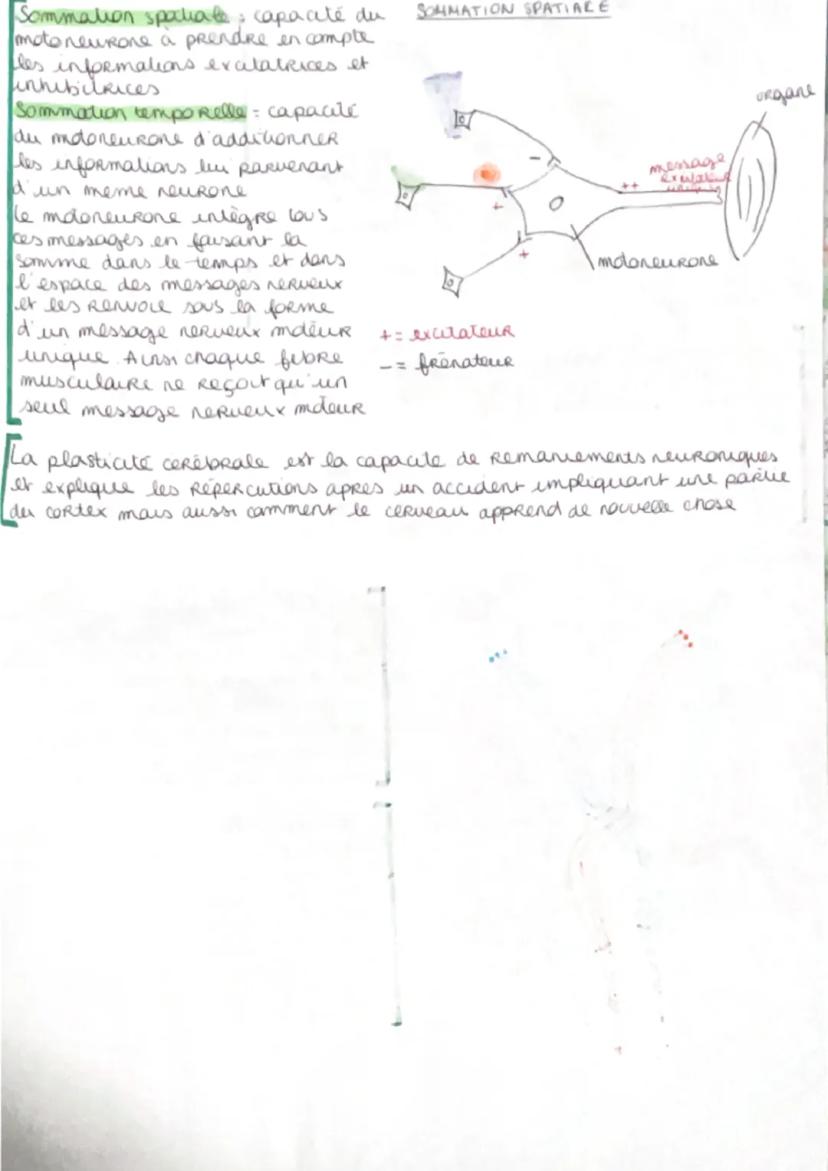 Sommation spatiale : capacité du
motoneurone à prendre en compte
les informations excitatrices et
inhibitrices
Sommation temporelle = capacité
du motoneurone d'additionner
les informations lui parvenant
d'un meme neurone
Le motoneurone intègre tous
ces messages en faisant la
somme dans le temps et dans
l'espace des messages nerveux
et les renvoie sous la forme
d'un message nerveux moteur
unique. Ainsi chaque fibre
musculaire ne reçoit qu'un
seul message nerveux moteur
SOMMATION SPATIALE
organe
message
excitateur
unique
++
-
+
+
motoneurone
+ = excitateur
- = frénateur
La plasticité cérébrale est la capacité de remaniements neuroniques
et explique les répercutions apres un accident impliquant une partie
du cortex mais aussi comment le cerveau apprend de nouvelle chose